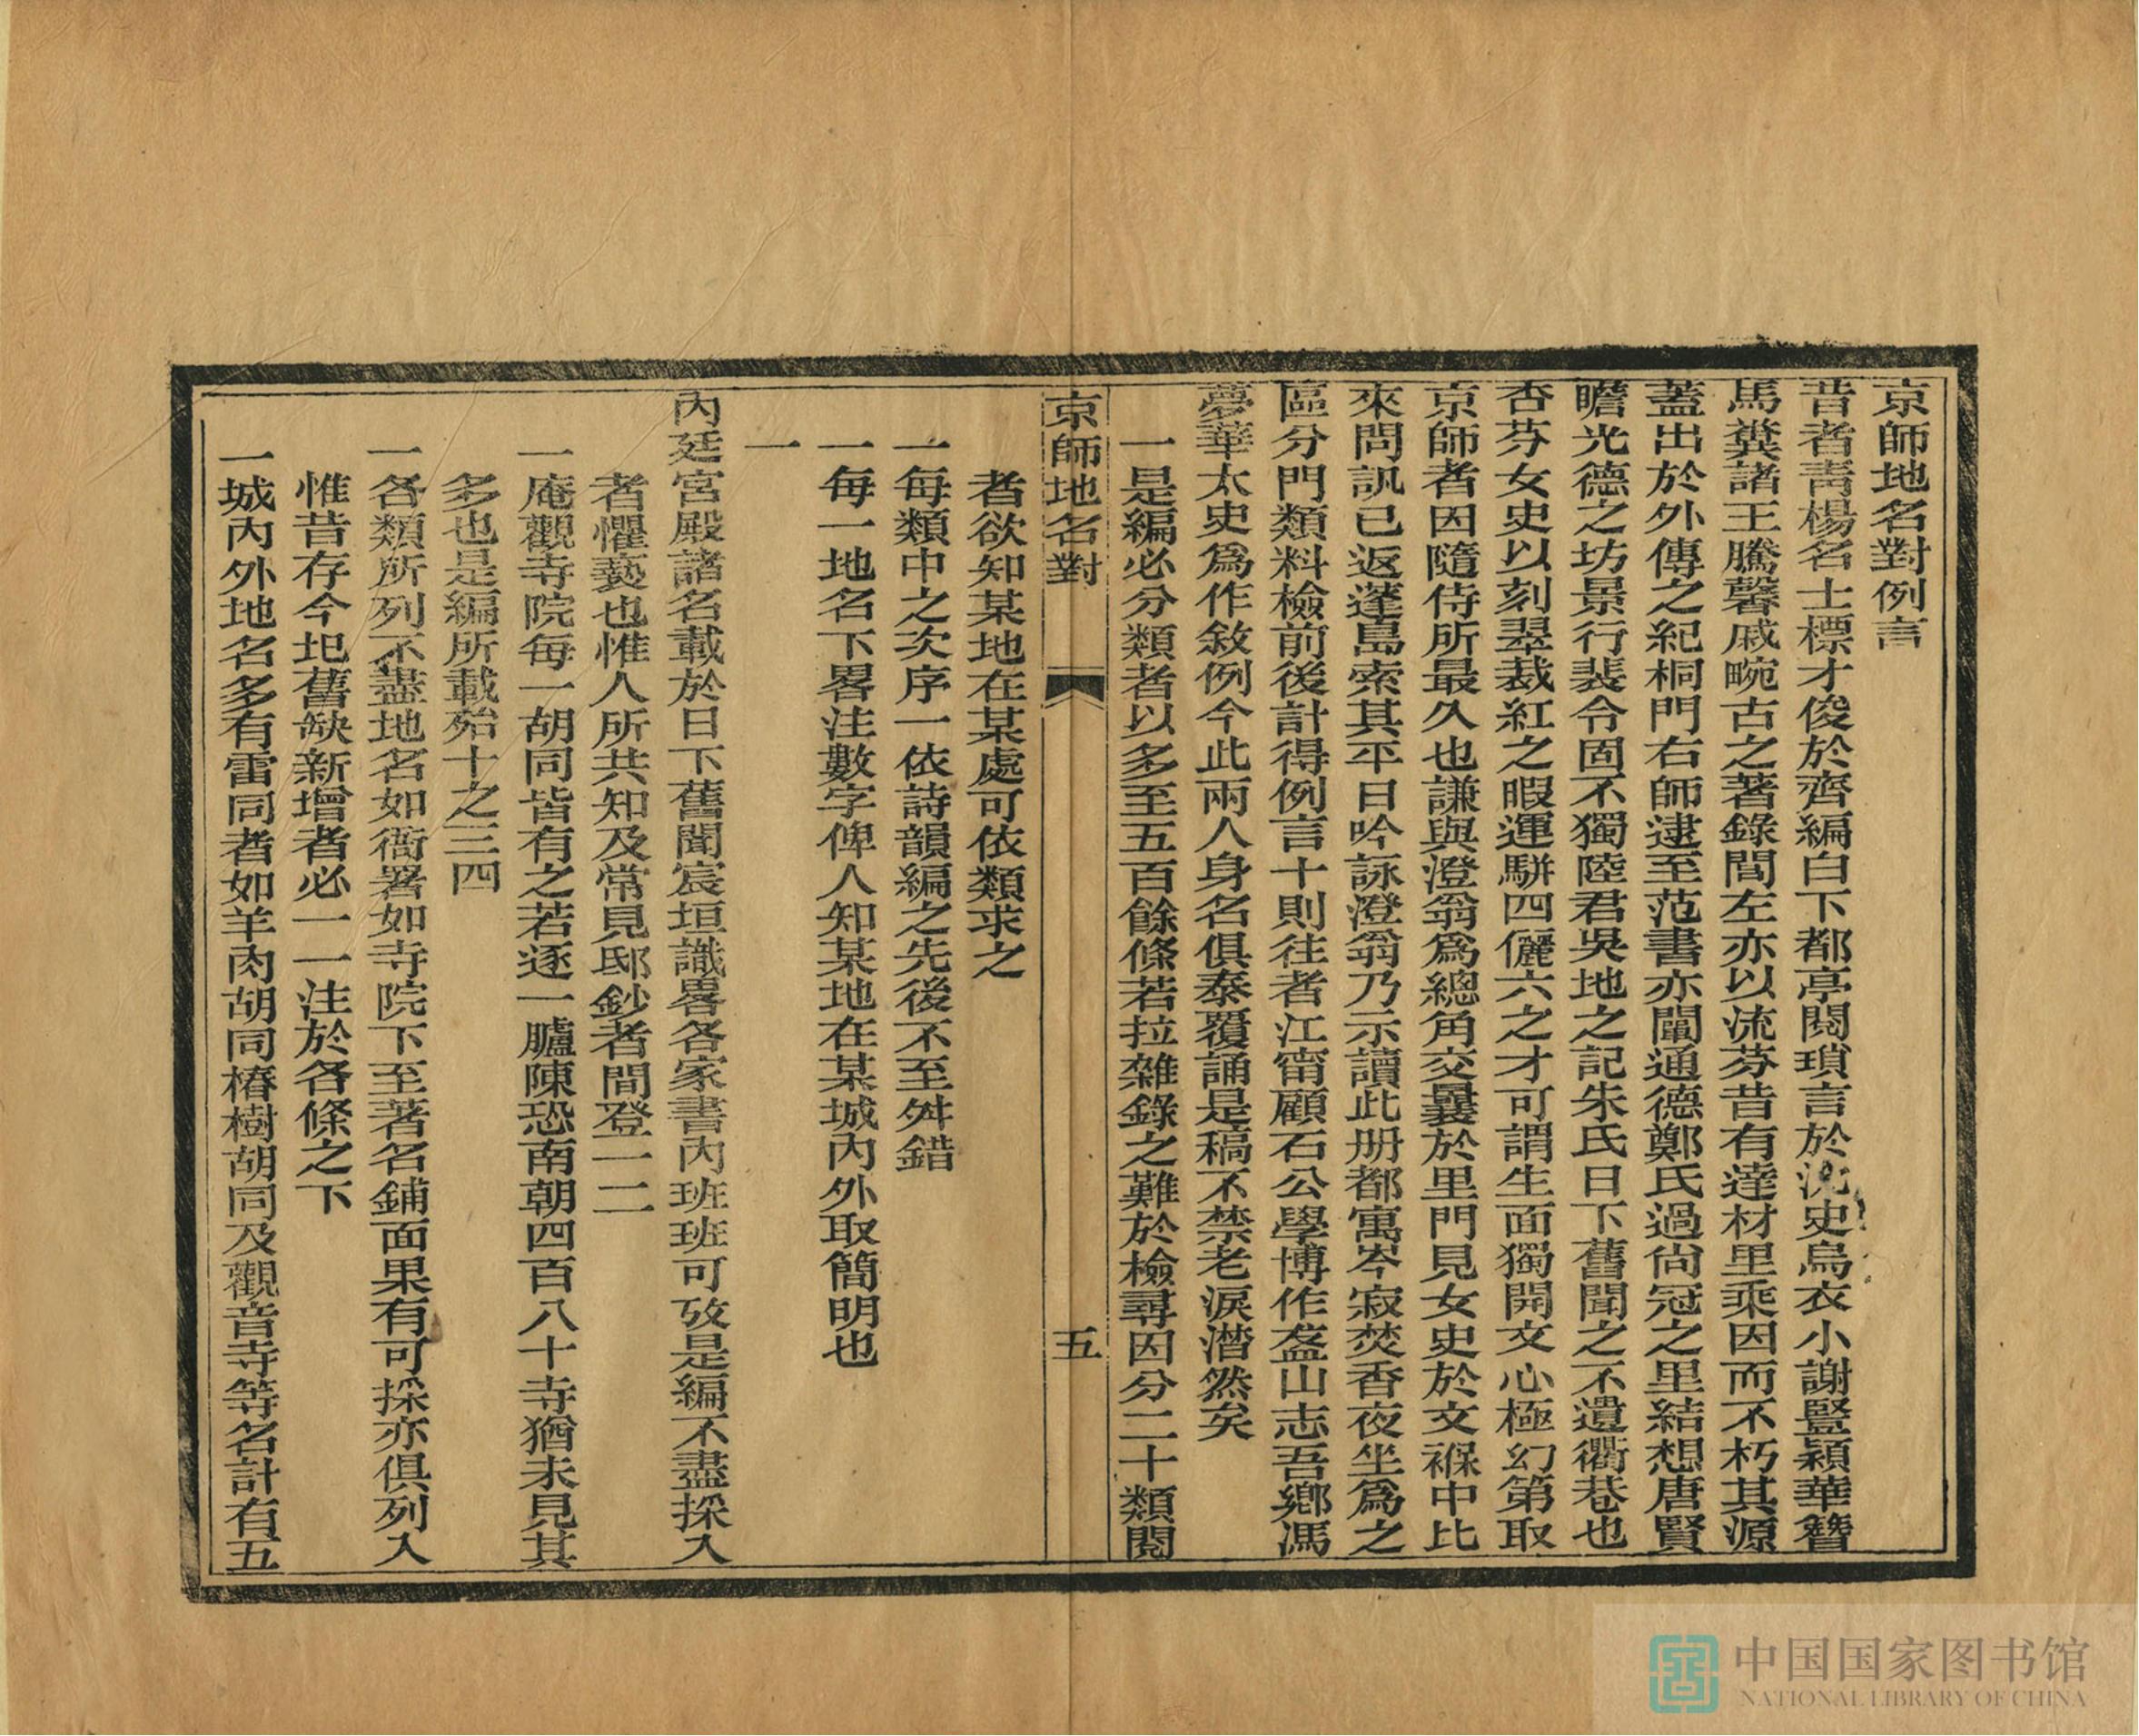 京師地名對例言
昔者靑楊名士標才俊於齊編白下都亭閱瑣言於沈史烏衣小謝豎穎華簪
馬糞諸王騰馨戚畹古之著錄閭左亦以流芬昔有達材里乘因而不朽其源
蓋出於外傳之紀桐門右師逮至范書亦闡通德鄭氏過尙冠之里結想唐賢
瞻光德之坊景行裴令固不獨陸君吳地之記朱氏日下舊聞之不遺衢巷也
杏芬女史以刻翠裁紅之暇運駢四儷六之才可謂生面獨開文心極幻第取
京師者因隨侍所最久也謙與澄翁爲總角交曩於里門見女史於文褓中比
來問訊已返蓬島索其平日吟詠澄翁乃示讀此册都寓岑寂焚香夜坐爲之
區分門類料檢前後計得例言十則往者江甯顧石公學博作盋山志吾鄉馮
夢華太史爲作敘例今此兩人身名俱泰覆誦是稿不禁老淚潸然矣
一是編必分類者以多至五百餘條若拉雜錄之難於檢尋因分二十類閱
京師地名對
五
者欲知某地在某處可依類求之
一每類中之次序一依詩韻編之先後不至舛錯
一每一地名下畧注數字俾人知某地在某城內外取簡明也
一
內廷宮殿諸名載於日下舊聞宸垣識畧各家書內班班可攷是編不盡採入
者懼褻也惟人所共知及常見邸鈔者間登一二
一庵觀寺院每一胡同皆有之若逐一臚陳恐南朝四百八十寺猶未見其
多也是編所載殆十之三四
一各類所列不盡地名如衙署如寺院下至著名鋪面果有可採亦俱列入
惟昔存今圯舊缺新增者必一一注於各條之下
一城內外地名多有雷同者如羊肉胡同椿樹胡同及觀音寺等名計有五
中国国家图书馆
NATIONAL LIBRARY OF CHINA